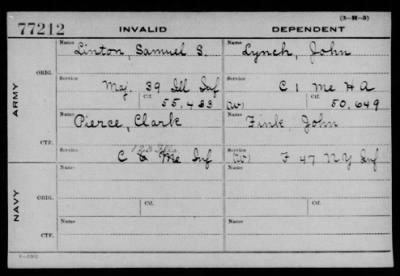 (3-M-5)
77212 INVALID DEPENDENT
Name Name
Linton, Samuel S. Lynch, John
ORIG.
Service Service
Maj. 39 Ill Inf C 1 Me H A
Ctf. Ctf.
55,433 (W) 50,649
ARMY
Name Name
Pierce, Clark Fink, John
CTF.
Service Service
C & Me Inf (W) F 47 N Y Inf
Name Name
ORIG.
Ctf. Ctf.
NAVY
Name Name
CTF.